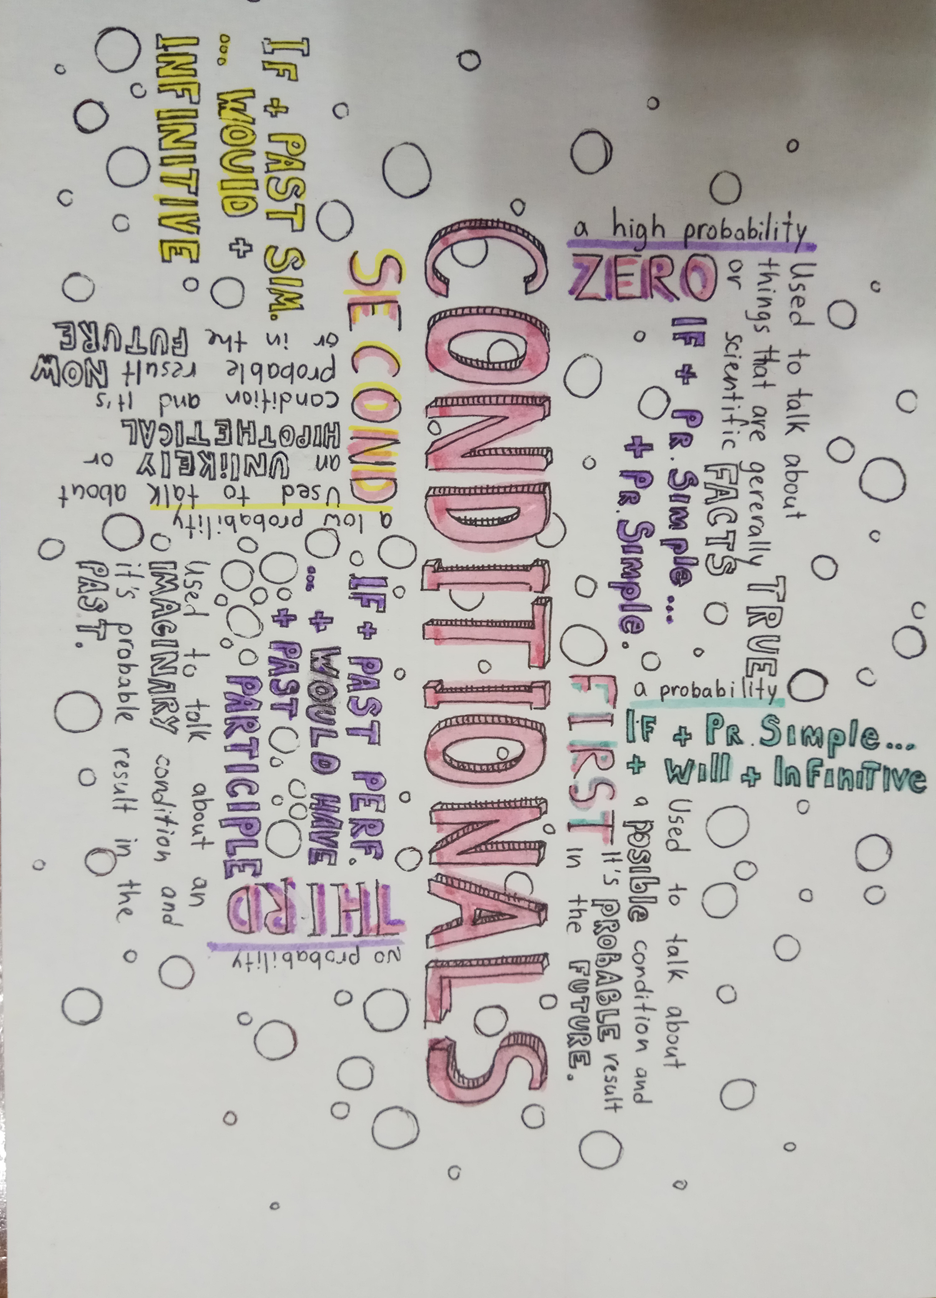 a high probability
ZERO
Used to talk about
things that are gererally TRUE
or scientific FACTS
IF + PR. Simple...
+ PR. Simple.
a probability
FIRST
IF + PR. Simple...
+ Will + InFiniTive
Used to talk about
a posible condition and
It's PROBABLE result
in the FUTURE.
CONDITIONALS
SECOND
a low probability
IF + PAST SIM.
... WOUlD +
INFINITIVE
Used to talk about
an UNLIKELY or
HIPOTHETICAL
condition and it's
probable result NOW
or in the FUTURE
THIRD
No probability
IF + PAST PERF.
... + WOULD HAVE
+ PAST PARTICIPLE
Used to talk about an
IMAGINARY condition and
it's probable result in the
PAST.